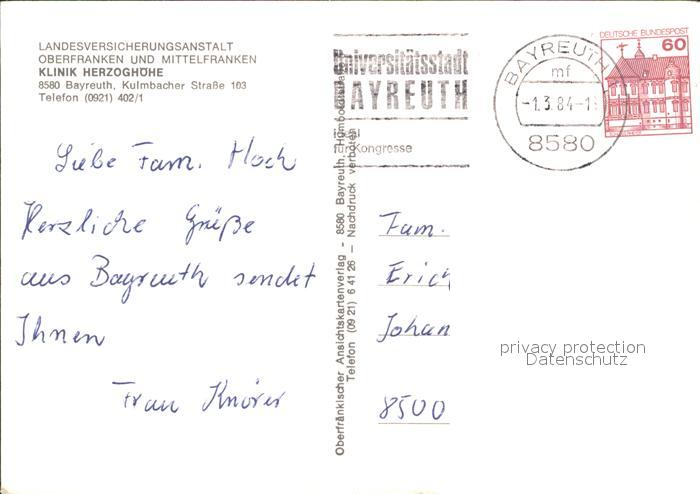 LANDESVERSICHERUNGSANSTALT
OBERFRANKEN UND MITTELFRANKEN
KLINIK HERZOGHÖHE
8580 Bayreuth, Kulmbacher Straße 103
Telefon (0921) 402/1
Liebe Fam. Hoch
Herzliche Grüße
aus Bayreuth sendet
Ihnen
Frau Knörer
Oberfränkischer Ansichtskartenverlag - 8580 Bayreuth,
Telefon (09 21) 6 41 26 — Nachdruck verboten
Universitätsstadt
BAYREUTH
für Kongresse
BAYREUTH
mf
-1.3.84-1
8580
DEUTSCHE BUNDESPOST
60
Fam.
Erich
Johan
8500
privacy protection
Datenschutz